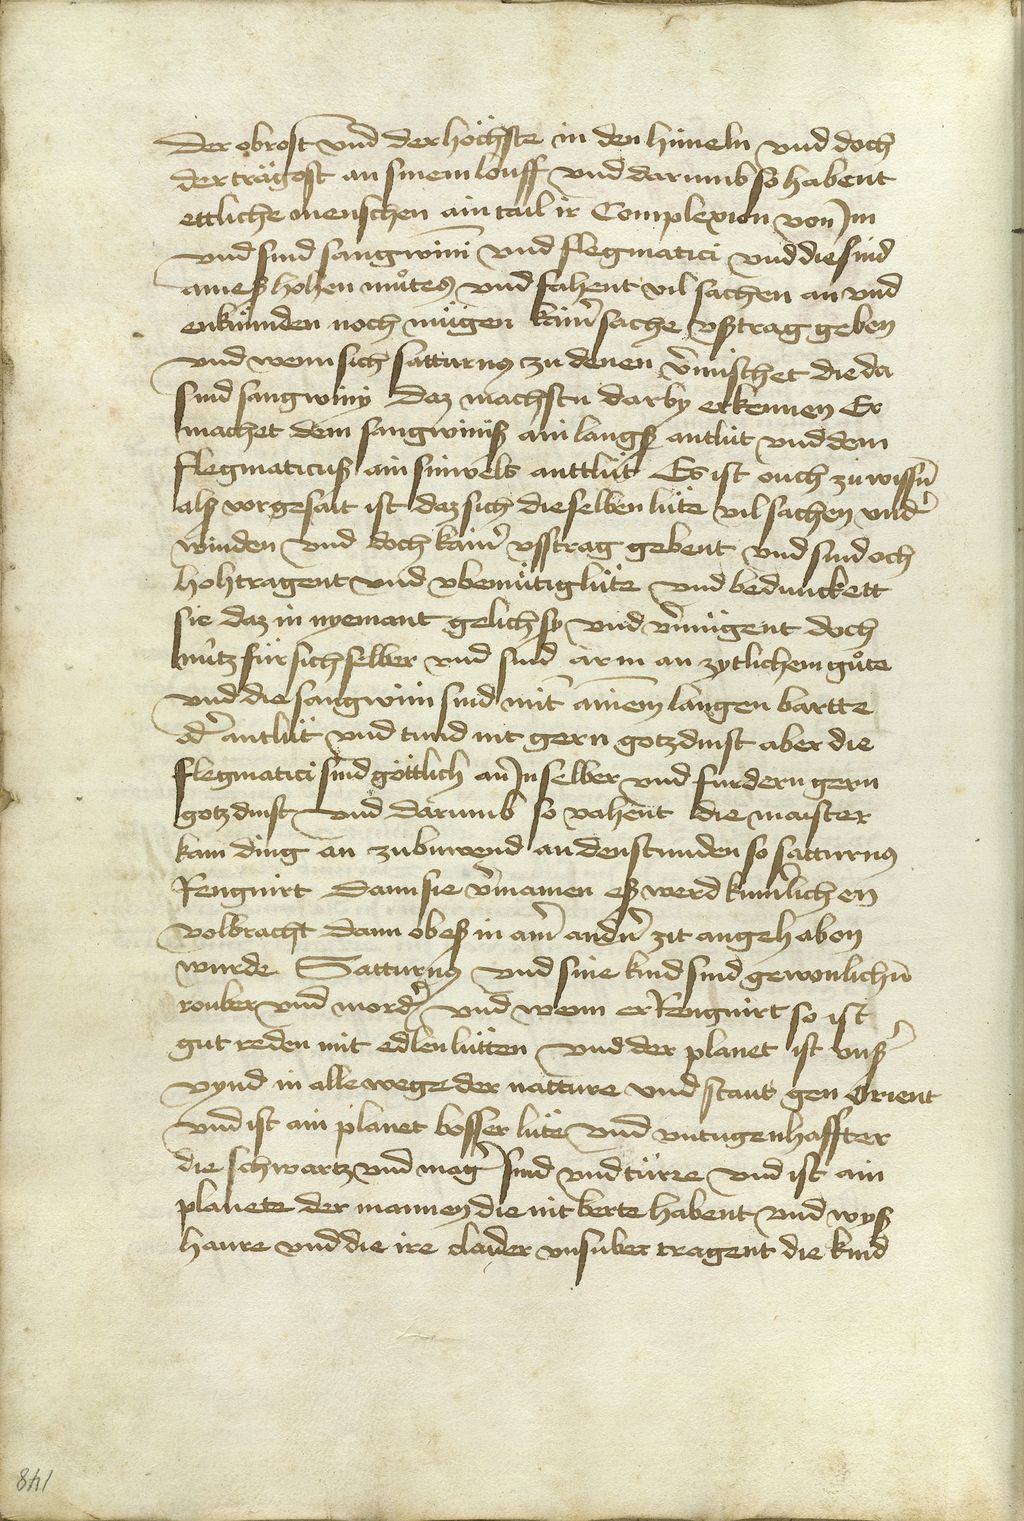 Der obrost vnd der höchste in den himeln vnd doch
der trägost an sinem louff vnd darumb so habent
ettliche menschen ain tail ir Complexion von Jm
vnd sind sangwini vnd flegmatici vnd die sind
aines hohen muͦtes vnd fahent vil sachen an vnd
enkünnden noch mügen kain̄ sache vßtrag geben
vnd wenn sich satturnus zu denen v̄mischet die da
sind sangwiny Daz machstu darby erkennen Er
machet dem sangwiniß ain langß antlüt vnd dem
flegmaticuß ain sinwels anttlüt Es ist ouch zu wissn̄
alß vorgesait ist daz sich die selben lüte vil sachen vnd̄
winden vnd doch kain̄ vsstrag gebent vnd sind och
hohtragent vnd vbemütig lüte vnd beduncket
sie daz in nyemant gelich sy vnd v̄mügent doch
nütz für sich selber vnd sind arm an zytlichem guͦte
vnd die sangwini sind mit ainem langen bartte
od̄ antlüt vnd tund nit gern gotzdinst aber die
flegmatici sind göttlich an Jn selber vnd furdern gern
gotzdinst vnd darumb so vahent die maister
kain ding an zu buwend an den stunden so satturnus
Rengnirt Dann sie v̄mainen eß werd kumlichen
volbracht dann ob eß in ain̄ andn̄ zit angehaben
wurde Satturnus vnd sine kind sind gewonlichn̄
rouber vnd mord̄ vnd wenn er Rengnirt so ist
gut reden mit edlen lütten vnd der planet ist vnß̄
vynd in alle wege der natture vnd staut gen Orient
vnd ist ain planet bosser lüte vnd vntugenhaffter
die schwartz vnd maḡ sind vnd türre vnd ist ain
planete der mannen die nit berte habent vnd wyß
haure vnd die ire claider vnsuber tragent die kind
148